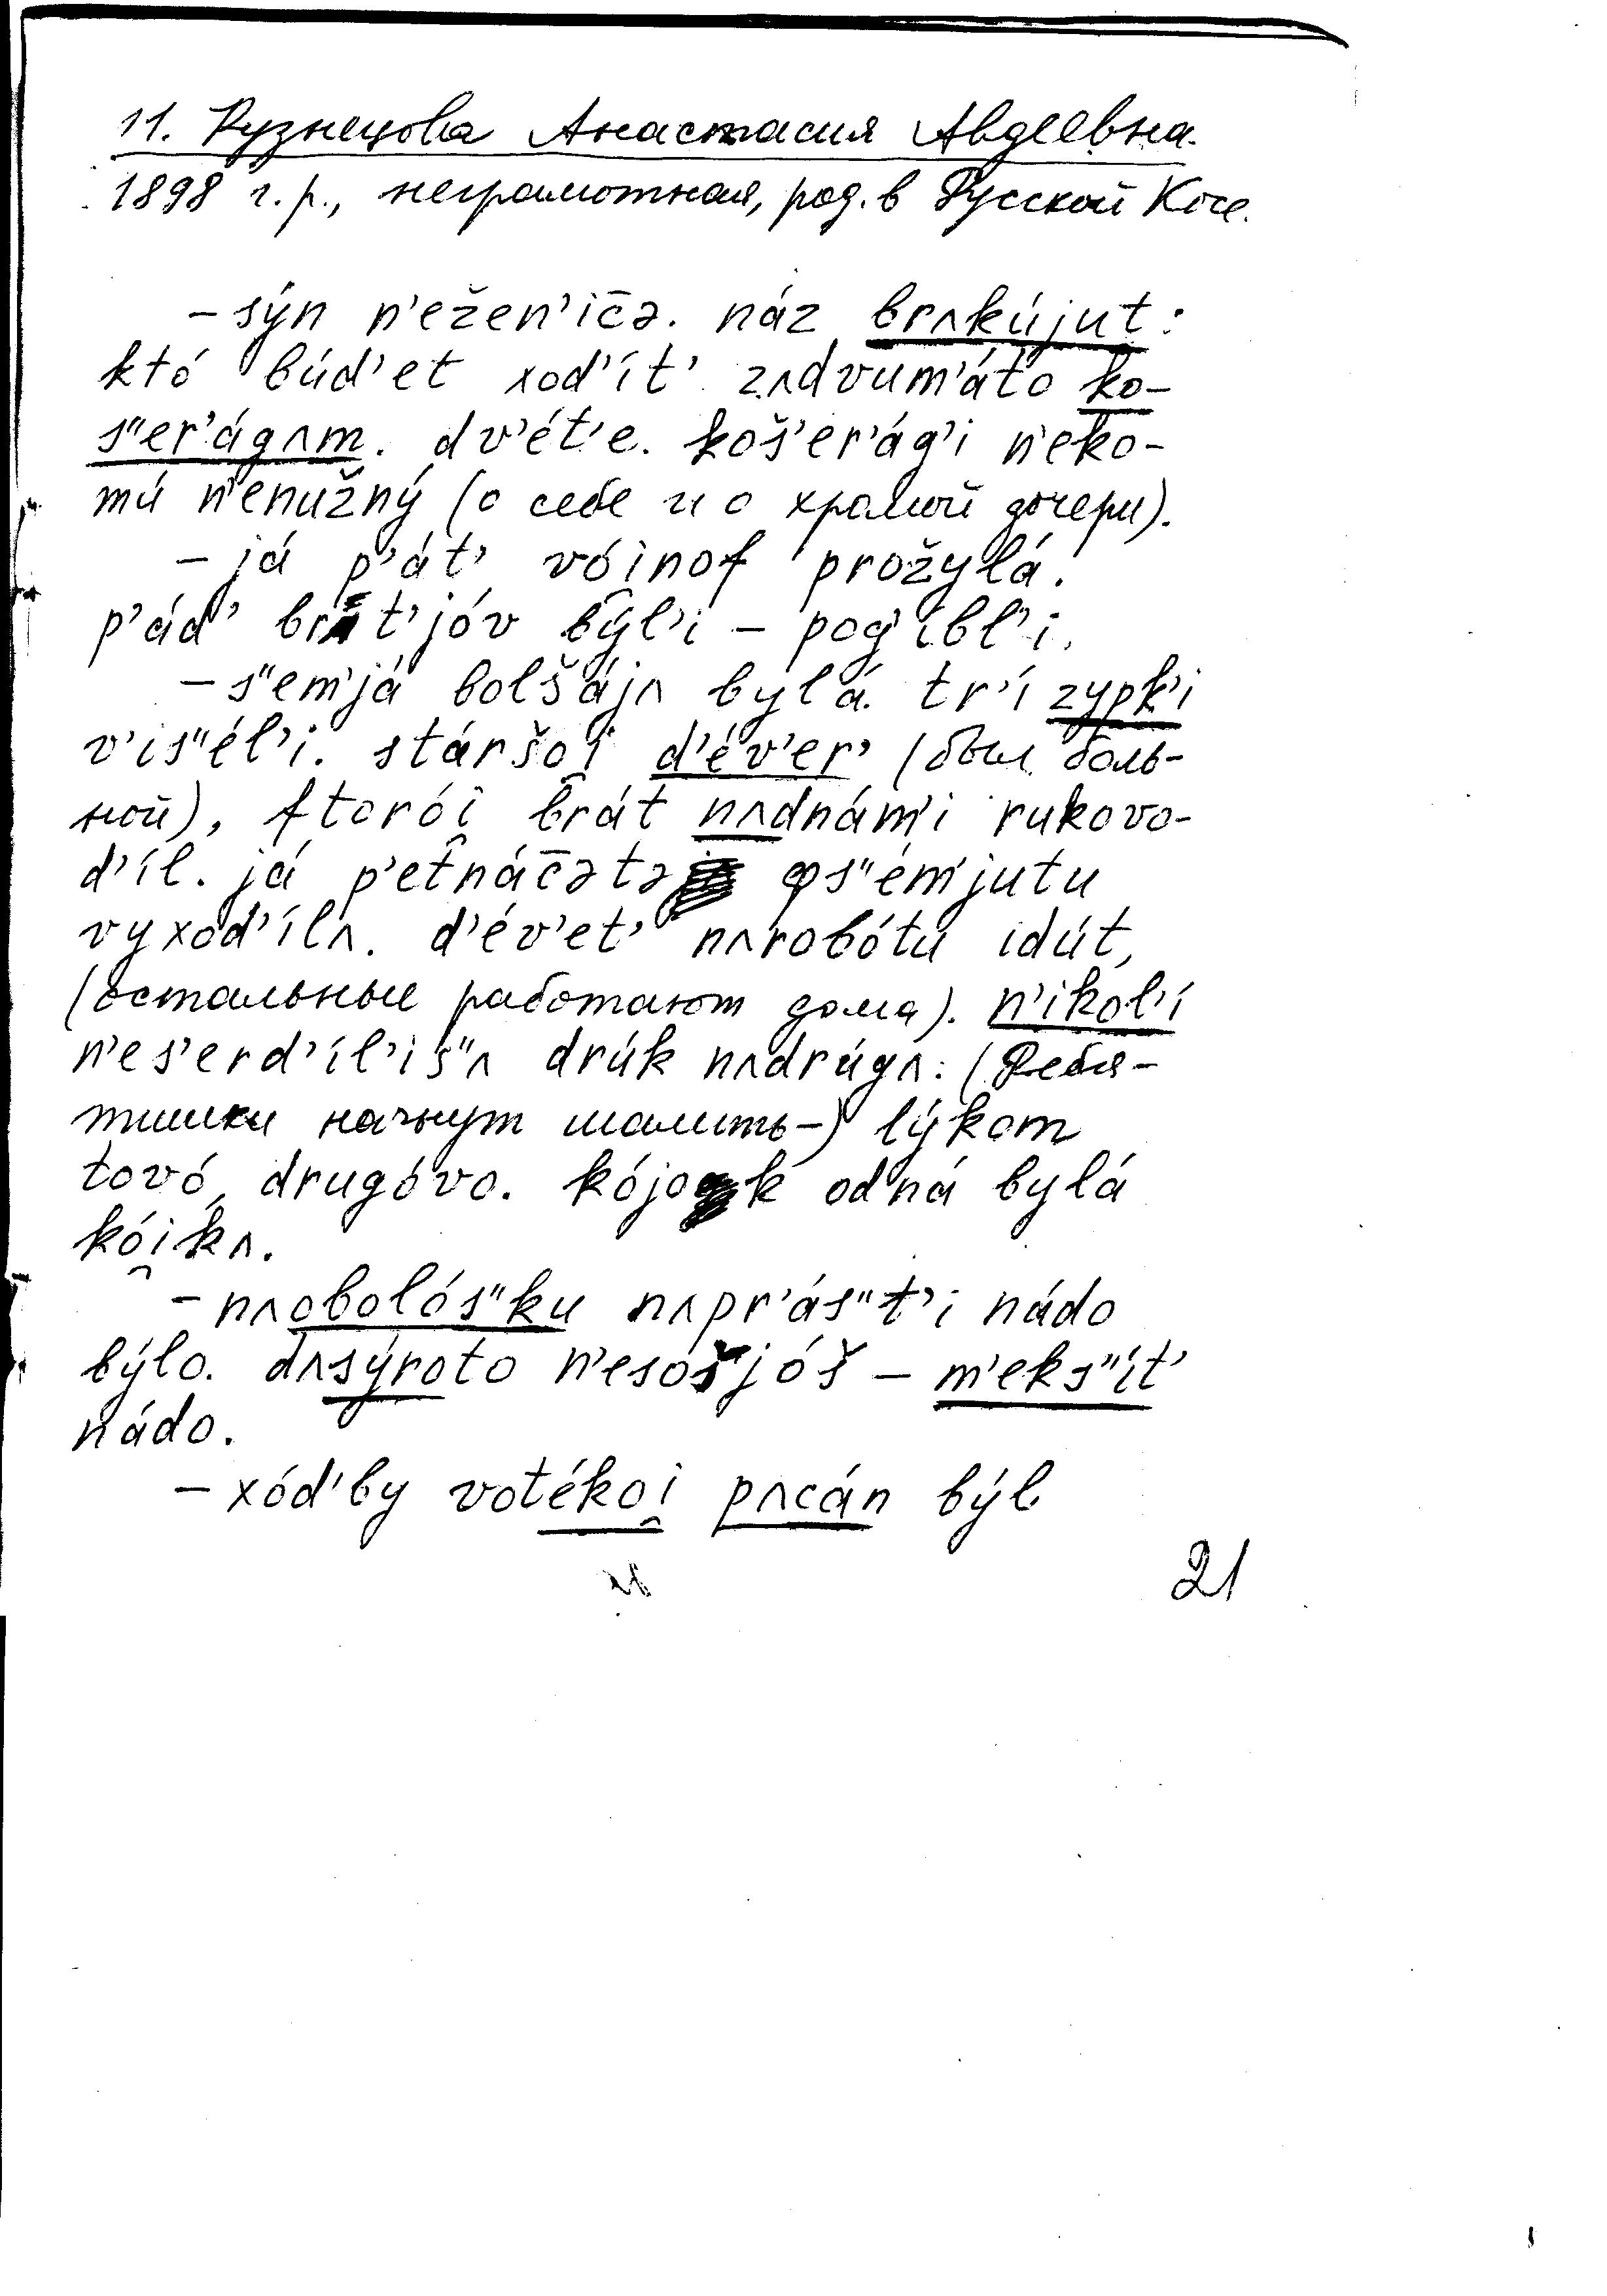 11. Кузнецова Анастасия Авдеевна.
1898 г.р., неграмотная, род. в Русской Косе.
– sýn n'ežen'ic̄ə. náz brʌkújut:
któ búd'et xod'ít' zʌdvum'áto ko-
s"er'ágʌm. dv'ét'e. koš'er'ág'i n'eko-
mú n'enužný (о себе и о хромой дочери).
– já p'át' vói̯nof prožylá.
p'ád' brát'jóv býl'i – pog'íbl'i.
– s"em'já bolšájʌ bylá. tr'í zypk'i
v'is"él'i. stáršoi̯ d'éver' (был боль-
ной), ftorói̯ brát nʌdnám'i rukovo-
d'íl. já p'etnác̄ətə φs"ém'jutu
vyxod'ílʌ. d'év'et' nʌrobótu idút,
(остальные работают дома). n'ikol'í
n'es'erd'íl'is"ʌ drúk nʌdrúgʌ: (Ребя-
тишки начнут шалить –) lýkom
tovó drugóvo. kójok odná bylá
kói̯kʌ.
– nʌobolós"ku nʌpr'ás"t'i nádo
býlo. dʌsýroto n'esošjóš – m'eks"ít'
nádo.
– xód'by votékoi̯ pʌcán býl
21